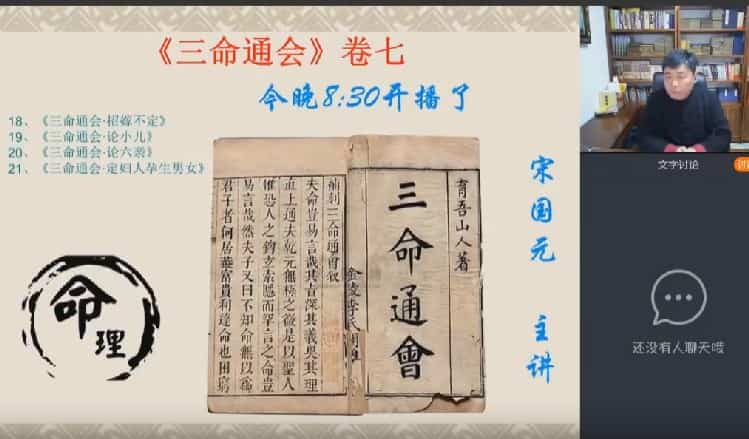 《三命通会》卷七
今晚8:30开播了
18、《三命通会·招嫁不定》
19、《三命通会·论小儿》
20、《三命通会·论六亲》
21、《三命通会·定妇人孕生男女》
命理
育吾山人著
三命通會
三命通會叙
夫命豈易言哉其言深其義奧其理
直上通夫乾元無極之微是以聖人
惟恐人之鉤玄索隱而罕言之命豈
易言哉然夫子又曰不知命無以為
君子者何居蓋富貴利達命也困窮
宋国元 主讲
文字讨论
讨
还没有人聊天哦